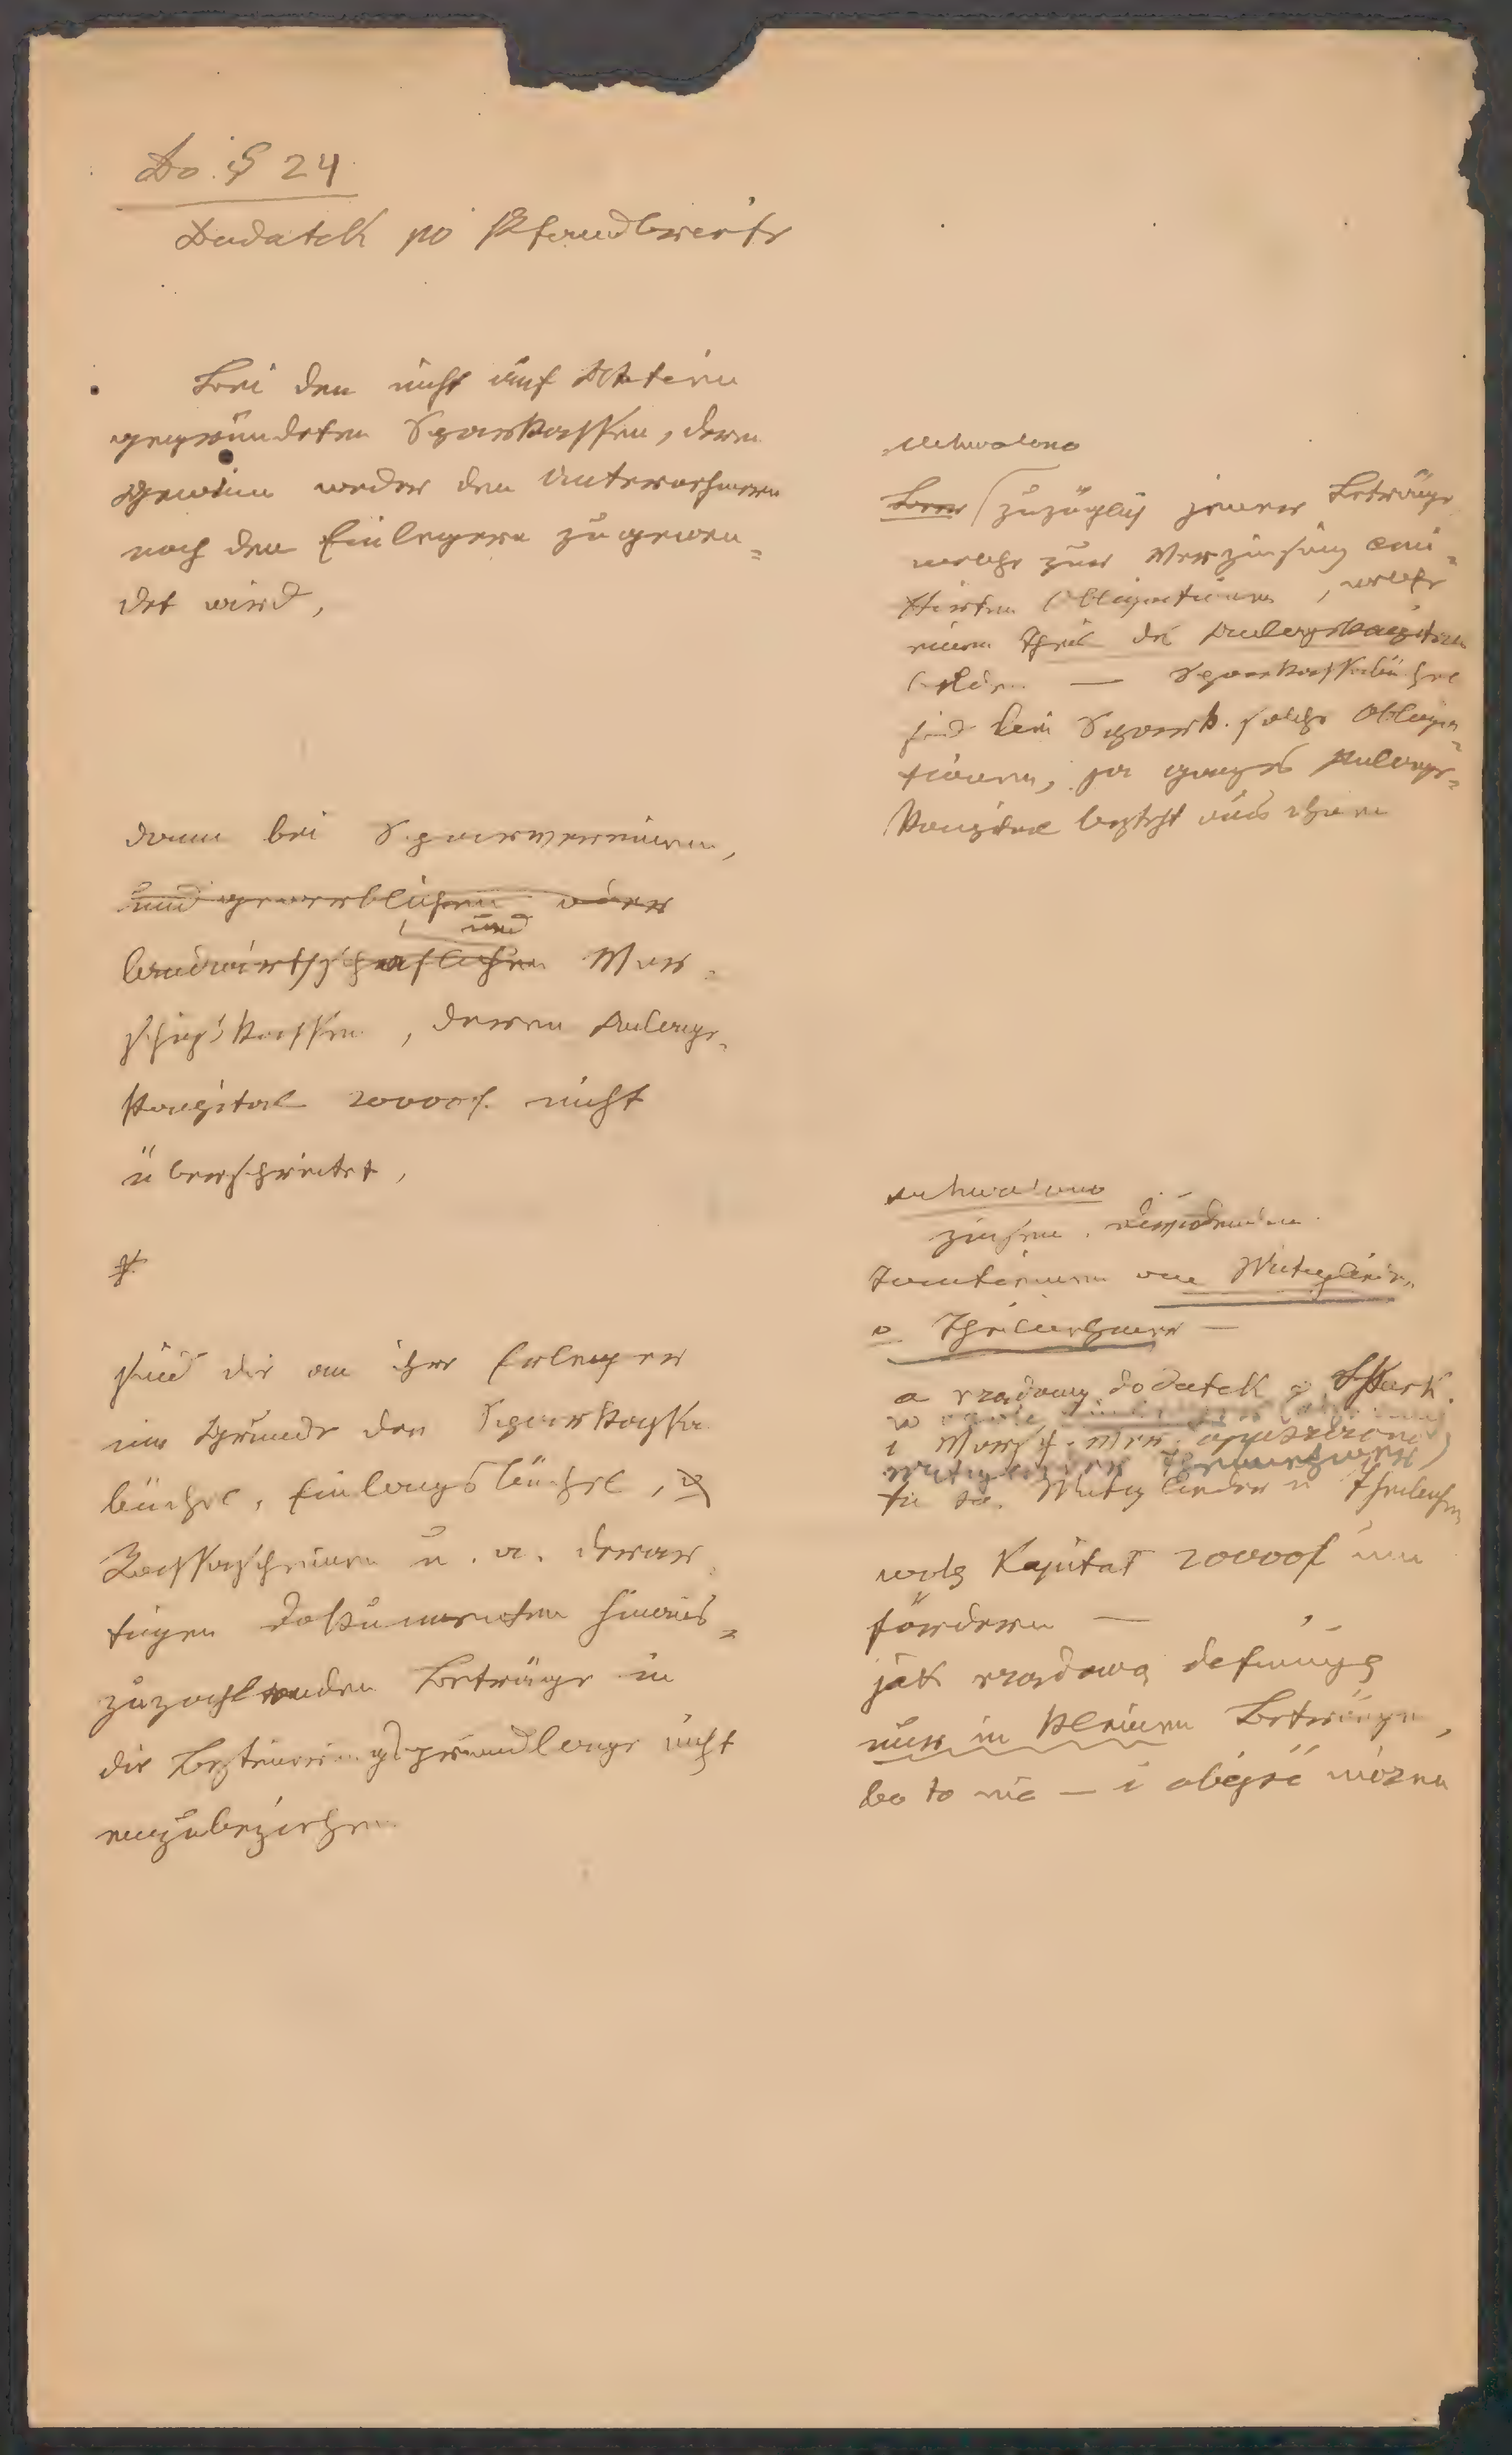 Do § 24
Dodatek po Pfandbriefe
Bei den nicht auf Aktien
gegründeten Sparkassen, deren
Gewinn weder den Unternehmern
noch den Einlegern zugewen=
det wird,
dann bei Sparvereinen,
und gewerblichen oder
und
landwirtschaftlichen Vor-
schußkassen, deren Anlage-
Kapital 20000 f. nicht
überschreitet,
#
sind die an ihre Einleger
im Grunde der Sparkasse
büchel, Einlagsbüchel,
Kassascheinen u. a. derar
tigen Dokumenten hinaus=
zuzahlenden Beträge in
die Besteuerungsgrundlage nicht
einzubeziehen
uchwalono
zuzüglich jener Beträge
welche zur Verzinsung emi=
ttirten Obligationen, welche
einen Theil des Anlagekapitals
bilden — Sparkassebüchel
sind bei Spark. solche Obliga=
tionen, ja ganzes Anlage=
Kapital besteht aus ihnen
uchwalono
Zinsen
Tantiemen von Mitglieder
o Theilnehmer —
a rządowy dodatek o Spark.
w
i Vorsch. Ver. opuszczono
tu są. Mitglieder u Theilnehm
Kapitał 20000 f
fördern —
jak rządową definicyę
nur in kleinen Beträgen,
bo to nic — i obejść można